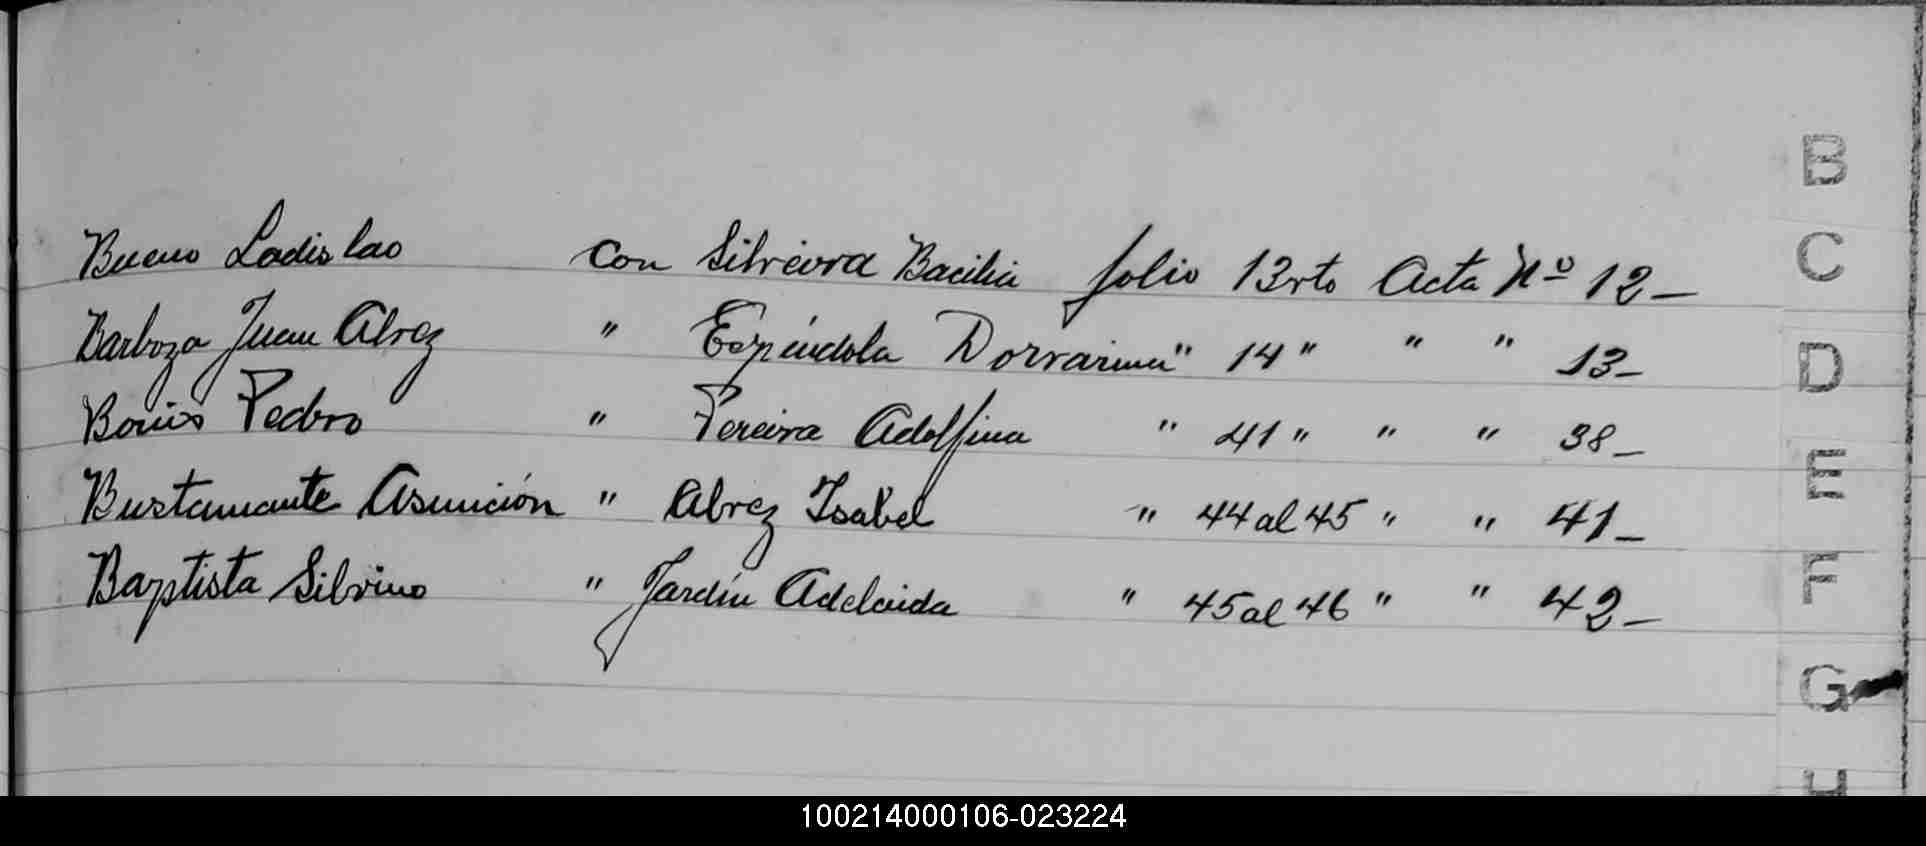 Bueno Ladislao con Silveira Bacilia folio 13vto Acta Nº 12_
B
C
Barboza Juan Alvez " Espíndola Dorvarina " 14 " " " 13_
D
Pedro " Pereira Adolfina " 41 " " " 38_
E
Bustamante Asunción " Alvez Isabel " 44 al 45 " " 41_
F
Baptista Silvino " Jardín Adelaida " 45 al 46 " " 42_
G
H
100214000106-023224